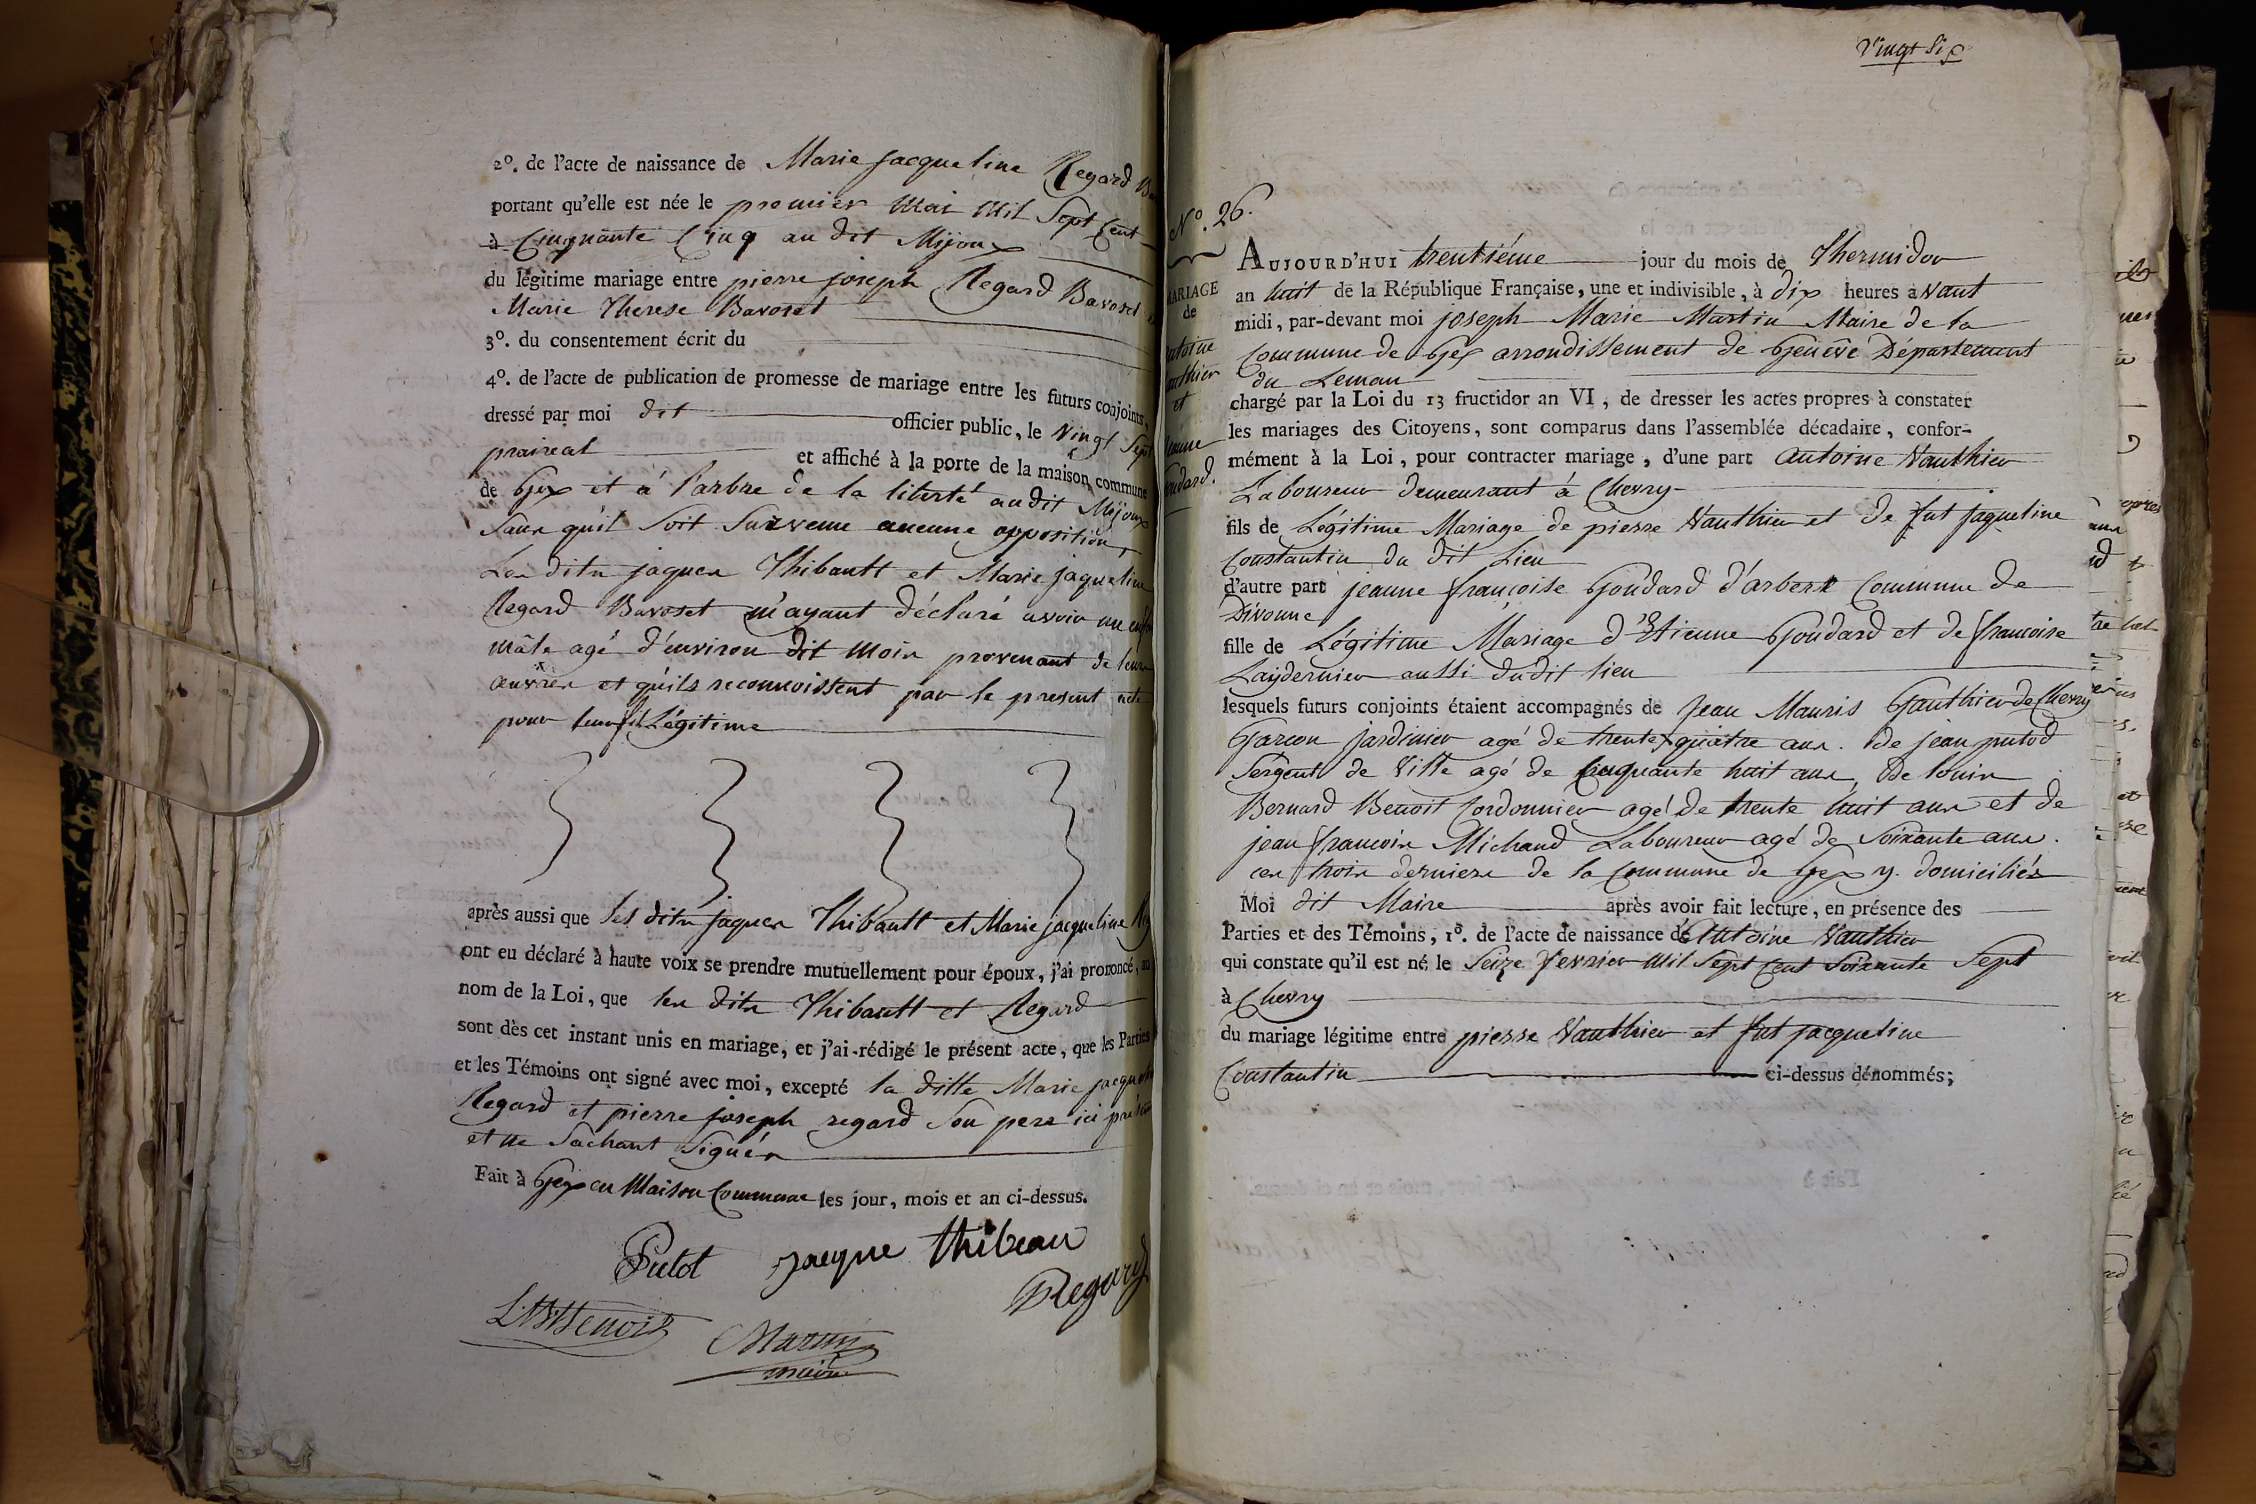 2º. de l'acte de naissance de Marie Jacqueline Regard
portant qu'elle est née le premier Mai Mil Sept Cent
à Cinquante Cinq au dit Mijoux
du légitime mariage entre pierre joseph Regard Bavoset
Marie Therese Bavoset
3º. du consentement écrit du
4º. de l'acte de publication de promesse de mariage entre les futurs conjoints,
dressé par moi dit officier public, le Vingt Sept
prairial et affiché à la porte de la maison commune
de Gex et à l'arbre de la liberté au dit Mijoux
Sans qu'il Soit Survenu aucune opposition,
Les dits jaques Thibautt et Marie jaqueline
Regard Bavoset m'ayant déclaré avoir un
mâle agé d'environ dit mois provenant de leurs
œuvres et qu'ils reconnoissent par le present acte
pour leur fils Légitime
après aussi que les dits jaques Thibautt et Marie jacqueline
ont eu déclaré à haute voix se prendre mutuellement pour époux, j'ai prononcé, au
nom de la Loi, que les dits Thibautt et Regard
sont dès cet instant unis en mariage, et j'ai rédigé le présent acte, que les Parties
et les Témoins ont signé avec moi, excepté la ditte Marie jacqueline
Regard et pierre joseph regard Son pere ici présent
et ne Sachant Signér
Fait à Gex en Maison Commune les jour, mois et an ci-dessus.
Putot jacque thibeau
Regard
L.B. Benoit
Martin
maire
Vingt Six
Nº. 26.
MARIAGE
de
antoine
Vauthier
et
jeanne
Goudard.
AUJOURD'HUI trentiéme jour du mois de Thermidor
an huit de la République Française, une et indivisible, à dix heures avant
midi, par-devant moi joseph Marie Martin Maire de la
Commune de Gex arrondissement de Genêve Département
du Leman
chargé par la Loi du 13 fructidor an VI, de dresser les actes propres à constater
les mariages des Citoyens, sont comparus dans l'assemblée décadaire, confor-
mément à la Loi, pour contracter mariage, d'une part antoine Vauthier
Laboureur demeurant à Chevry
fils de Légitime Mariage de pierre Vauthier et de fut jaqueline
Constantin du dit Lieu
d'autre part jeanne françoise Goudard d'arbere Commune de
Divonne
fille de Légitime Mariage d'Etienne Goudard et de francoise
Laydernier aussi dudit lieu
lesquels futurs conjoints étaient accompagnés de Jean Mauris Gauthier de Chevry
Garcon jardinier agé de trente quatre ans. de jean putod
Sergent de Ville agé de Cinquante huit ans, de louis
Bernard Benoit Cordonnier agé de trente huit ans et de
jean francois Michaud Laboureur agé de Soixante ans.
ces trois derniers de la Commune de Gex y. domiciliés
Moi dit Maire après avoir fait lecture, en présence des
Parties et des Témoins, 1º. de l'acte de naissance de Antoine Vauthier
qui constate qu'il est né le Seize fevrier Mil Sept Cent Soixante Sept
à Chevry
du mariage légitime entre pierre Vauthier et fut jacqueline
Constantin ci-dessus dénommés;